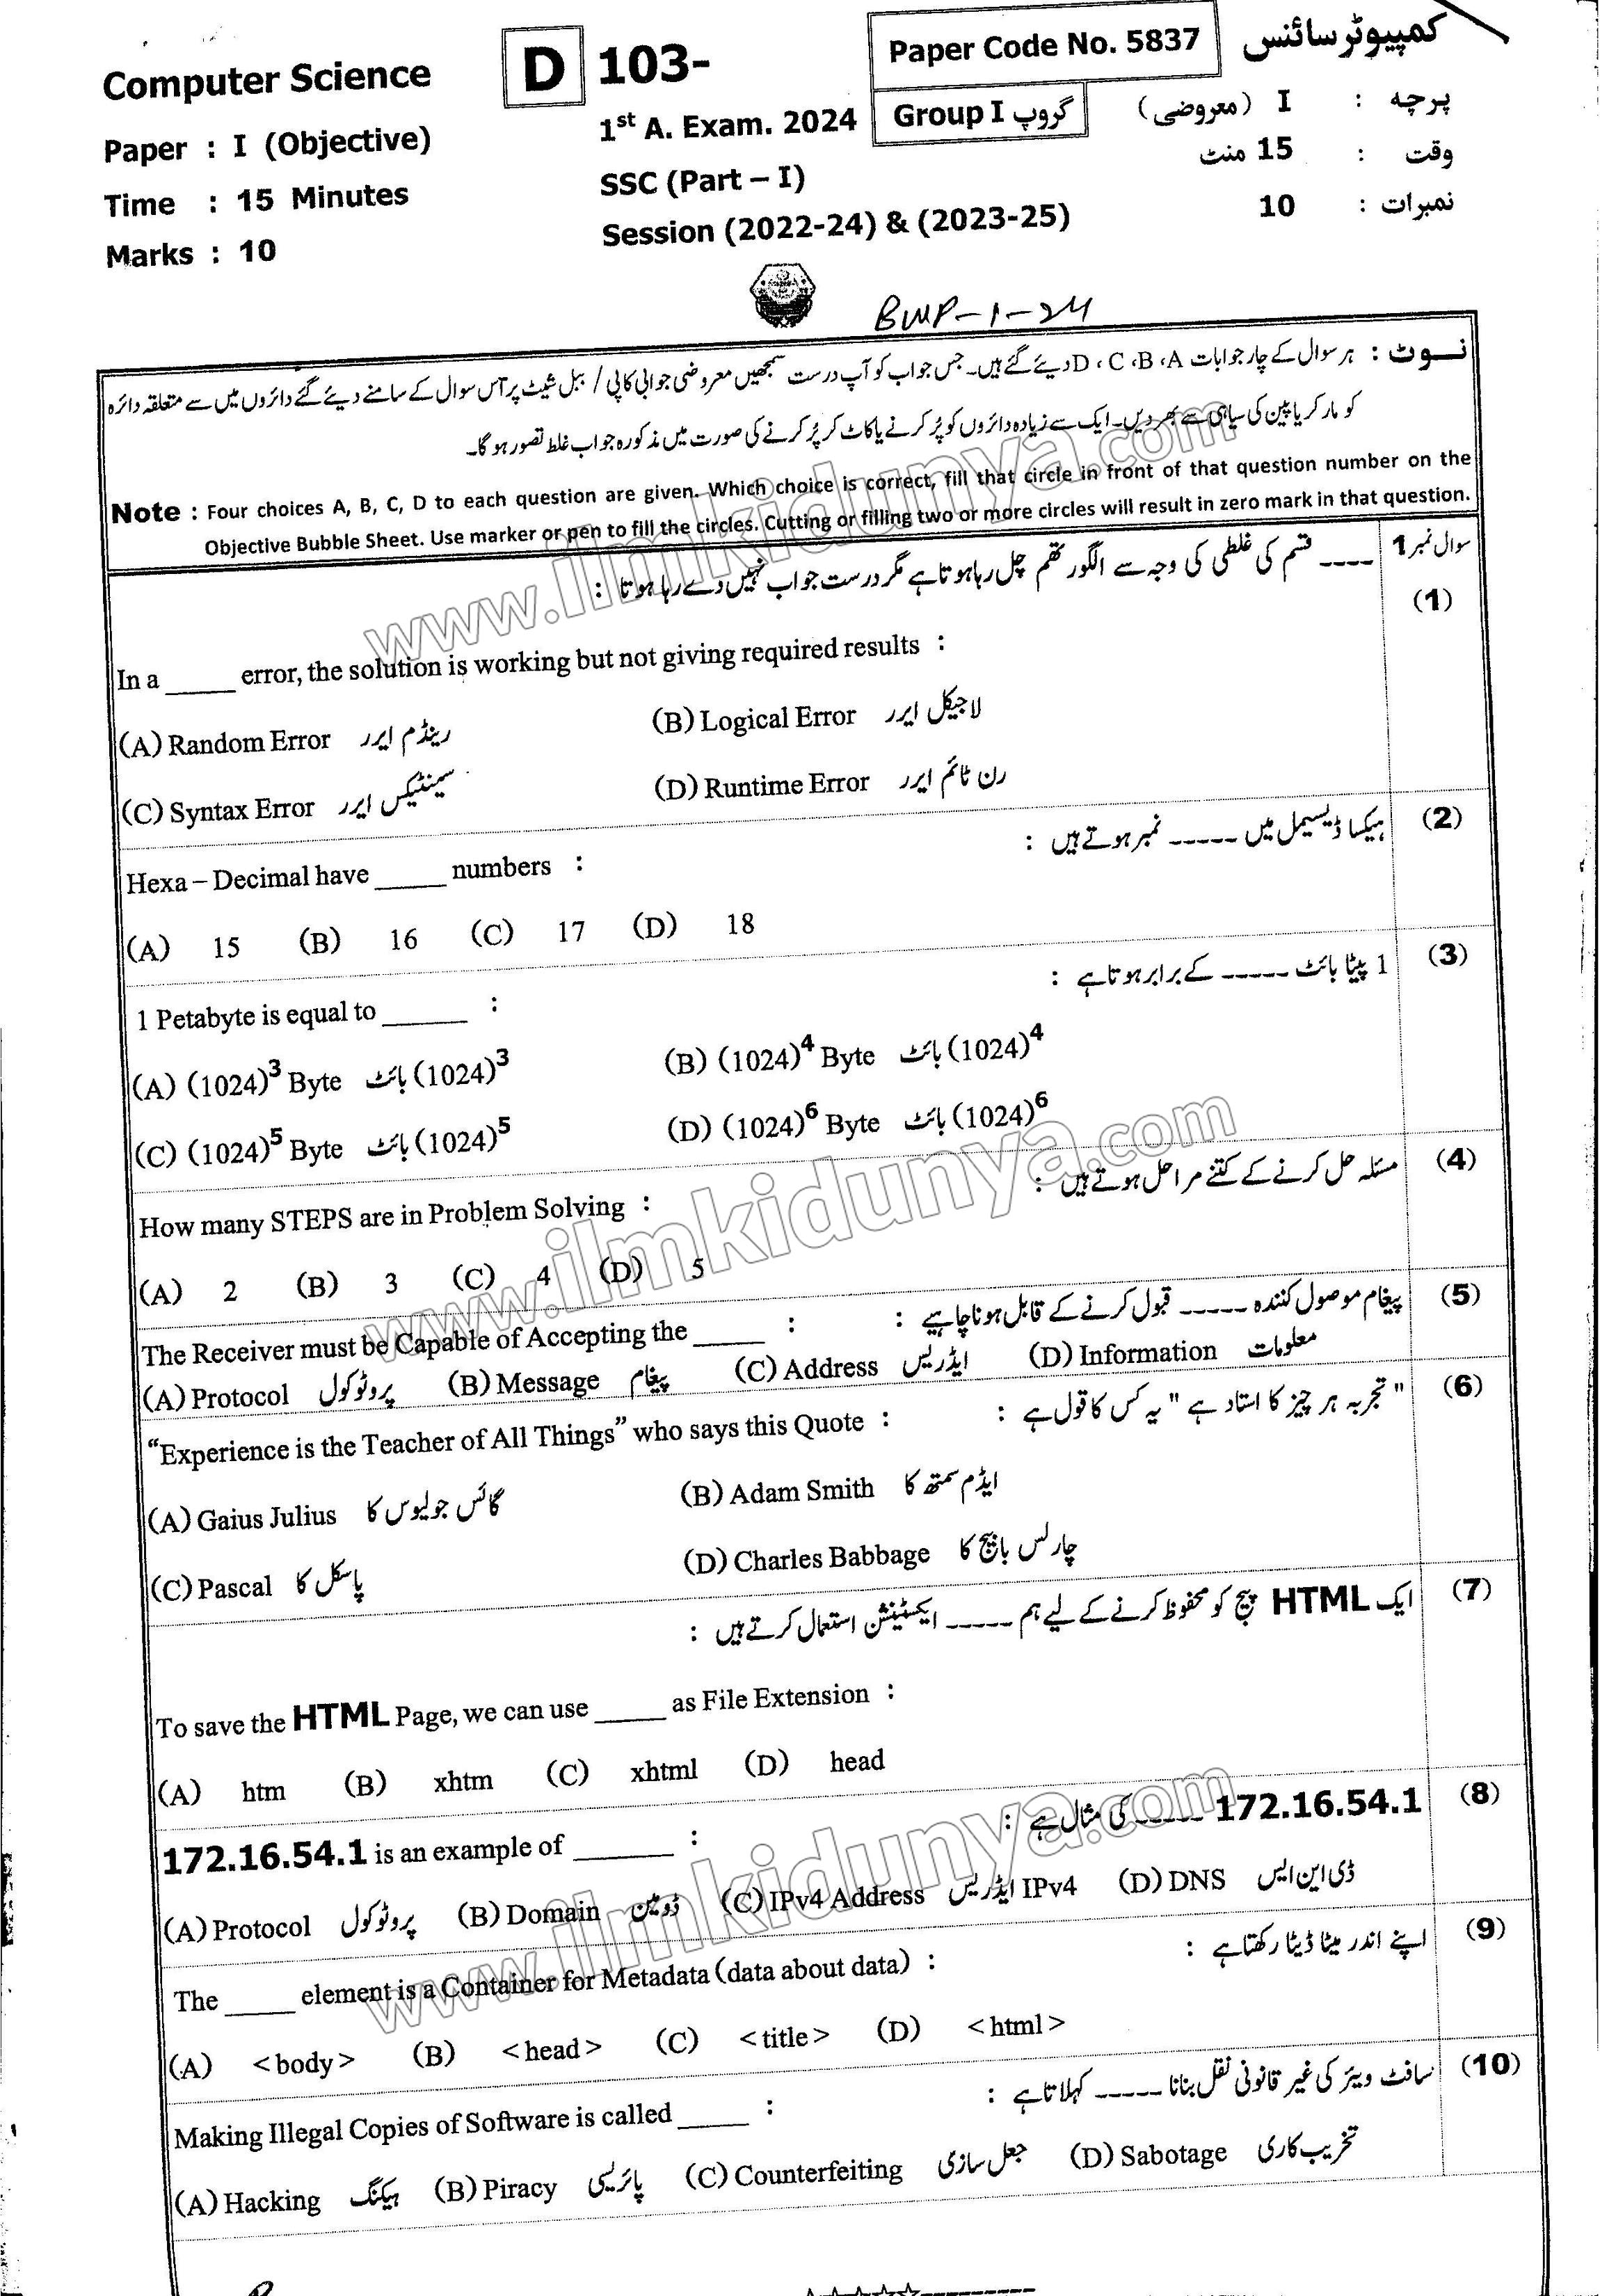 Computer Science
D 103-
Paper Code No. 5837
کمپیوٹر سائنس
Paper : I (Objective)
1st A. Exam. 2024
Group I گروپ
پرچہ : I (معروضی)
Time : 15 Minutes
SSC (Part – I)
وقت : 15 منٹ
Marks : 10
Session (2022-24) & (2023-25)
نمبرات : 10
BWP-1-24
نـوٹ : ہر سوال کے چار جوابات A، B، C، D دیئے گئے ہیں۔ جس جواب کو آپ درست سمجھیں معروضی جوابی کاپی / ببل شیٹ پر اُس سوال کے سامنے دیئے گئے دائروں میں سے متعلقہ دائرہ
کو مارکر یا پین کی سیاہی سے بھر دیں۔ ایک سے زیادہ دائروں کو پُر کرنے یا کاٹ کر پُر کرنے کی صورت میں مذکورہ جواب غلط تصور ہو گا۔
Note : Four choices A, B, C, D to each question are given. Which choice is correct, fill that circle in front of that question number on the
Objective Bubble Sheet. Use marker or pen to fill the circles. Cutting or filling two or more circles will result in zero mark in that question.
سوال نمبر 1
(1) ---- قسم کی غلطی کی وجہ سے الگورتھم چل رہا ہوتا ہے مگر درست جواب نہیں دے رہا ہوتا :
In a _____ error, the solution is working but not giving required results :
(A) Random Error رینڈم ایرر (B) Logical Error لاجیکل ایرر
(C) Syntax Error سینٹیکس ایرر (D) Runtime Error رن ٹائم ایرر
(2) ہیکسا ڈیسیمل میں ----- نمبر ہوتے ہیں :
Hexa – Decimal have _____ numbers :
(A) 15 (B) 16 (C) 17 (D) 18
(3) 1 پیٹا بائٹ ----- کے برابر ہوتا ہے :
1 Petabyte is equal to ______ :
(A) (1024)³ Byte بائٹ (1024)³ (B) (1024)⁴ Byte بائٹ (1024)⁴
(C) (1024)⁵ Byte بائٹ (1024)⁵ (D) (1024)⁶ Byte بائٹ (1024)⁶
(4) مسئلہ حل کرنے کے کتنے مراحل ہوتے ہیں :
How many STEPS are in Problem Solving :
(A) 2 (B) 3 (C) 4 (D) 5
(5) پیغام موصول کنندہ ----- قبول کرنے کے قابل ہونا چاہیے :
The Receiver must be Capable of Accepting the _____ :
(A) Protocol پروٹوکول (B) Message پیغام (C) Address ایڈریس (D) Information معلومات
(6) "تجربہ ہر چیز کا استاد ہے" یہ کس کا قول ہے :
“Experience is the Teacher of All Things” who says this Quote :
(A) Gaius Julius گائس جولیوس کا (B) Adam Smith ایڈم سمتھ کا
(C) Pascal پاسکل کا (D) Charles Babbage چارلس بابیج کا
(7) ایک HTML پیج کو محفوظ کرنے کے لیے ہم ----- ایکسٹینشن استعمال کرتے ہیں :
To save the HTML Page, we can use _____ as File Extension :
(A) htm (B) xhtm (C) xhtml (D) head
(8) 172.16.54.1 ----- کی مثال ہے :
172.16.54.1 is an example of _______ :
(A) Protocol پروٹوکول (B) Domain ڈومین (C) IPv4 Address ایڈریس IPv4 (D) DNS ڈی این ایس
(9) اپنے اندر میٹا ڈیٹا رکھتا ہے :
The _____ element is a Container for Metadata (data about data) :
(A) <body> (B) <head> (C) <title> (D) <html>
(10) سافٹ ویئر کی غیر قانونی نقل بنانا ----- کہلاتا ہے :
Making Illegal Copies of Software is called _____ :
(A) Hacking ہیکنگ (B) Piracy پائریسی (C) Counterfeiting جعل سازی (D) Sabotage تخریب کاری
www.ilmkidunya.com
www.ilmkidunya.com
www.ilmkidunya.com